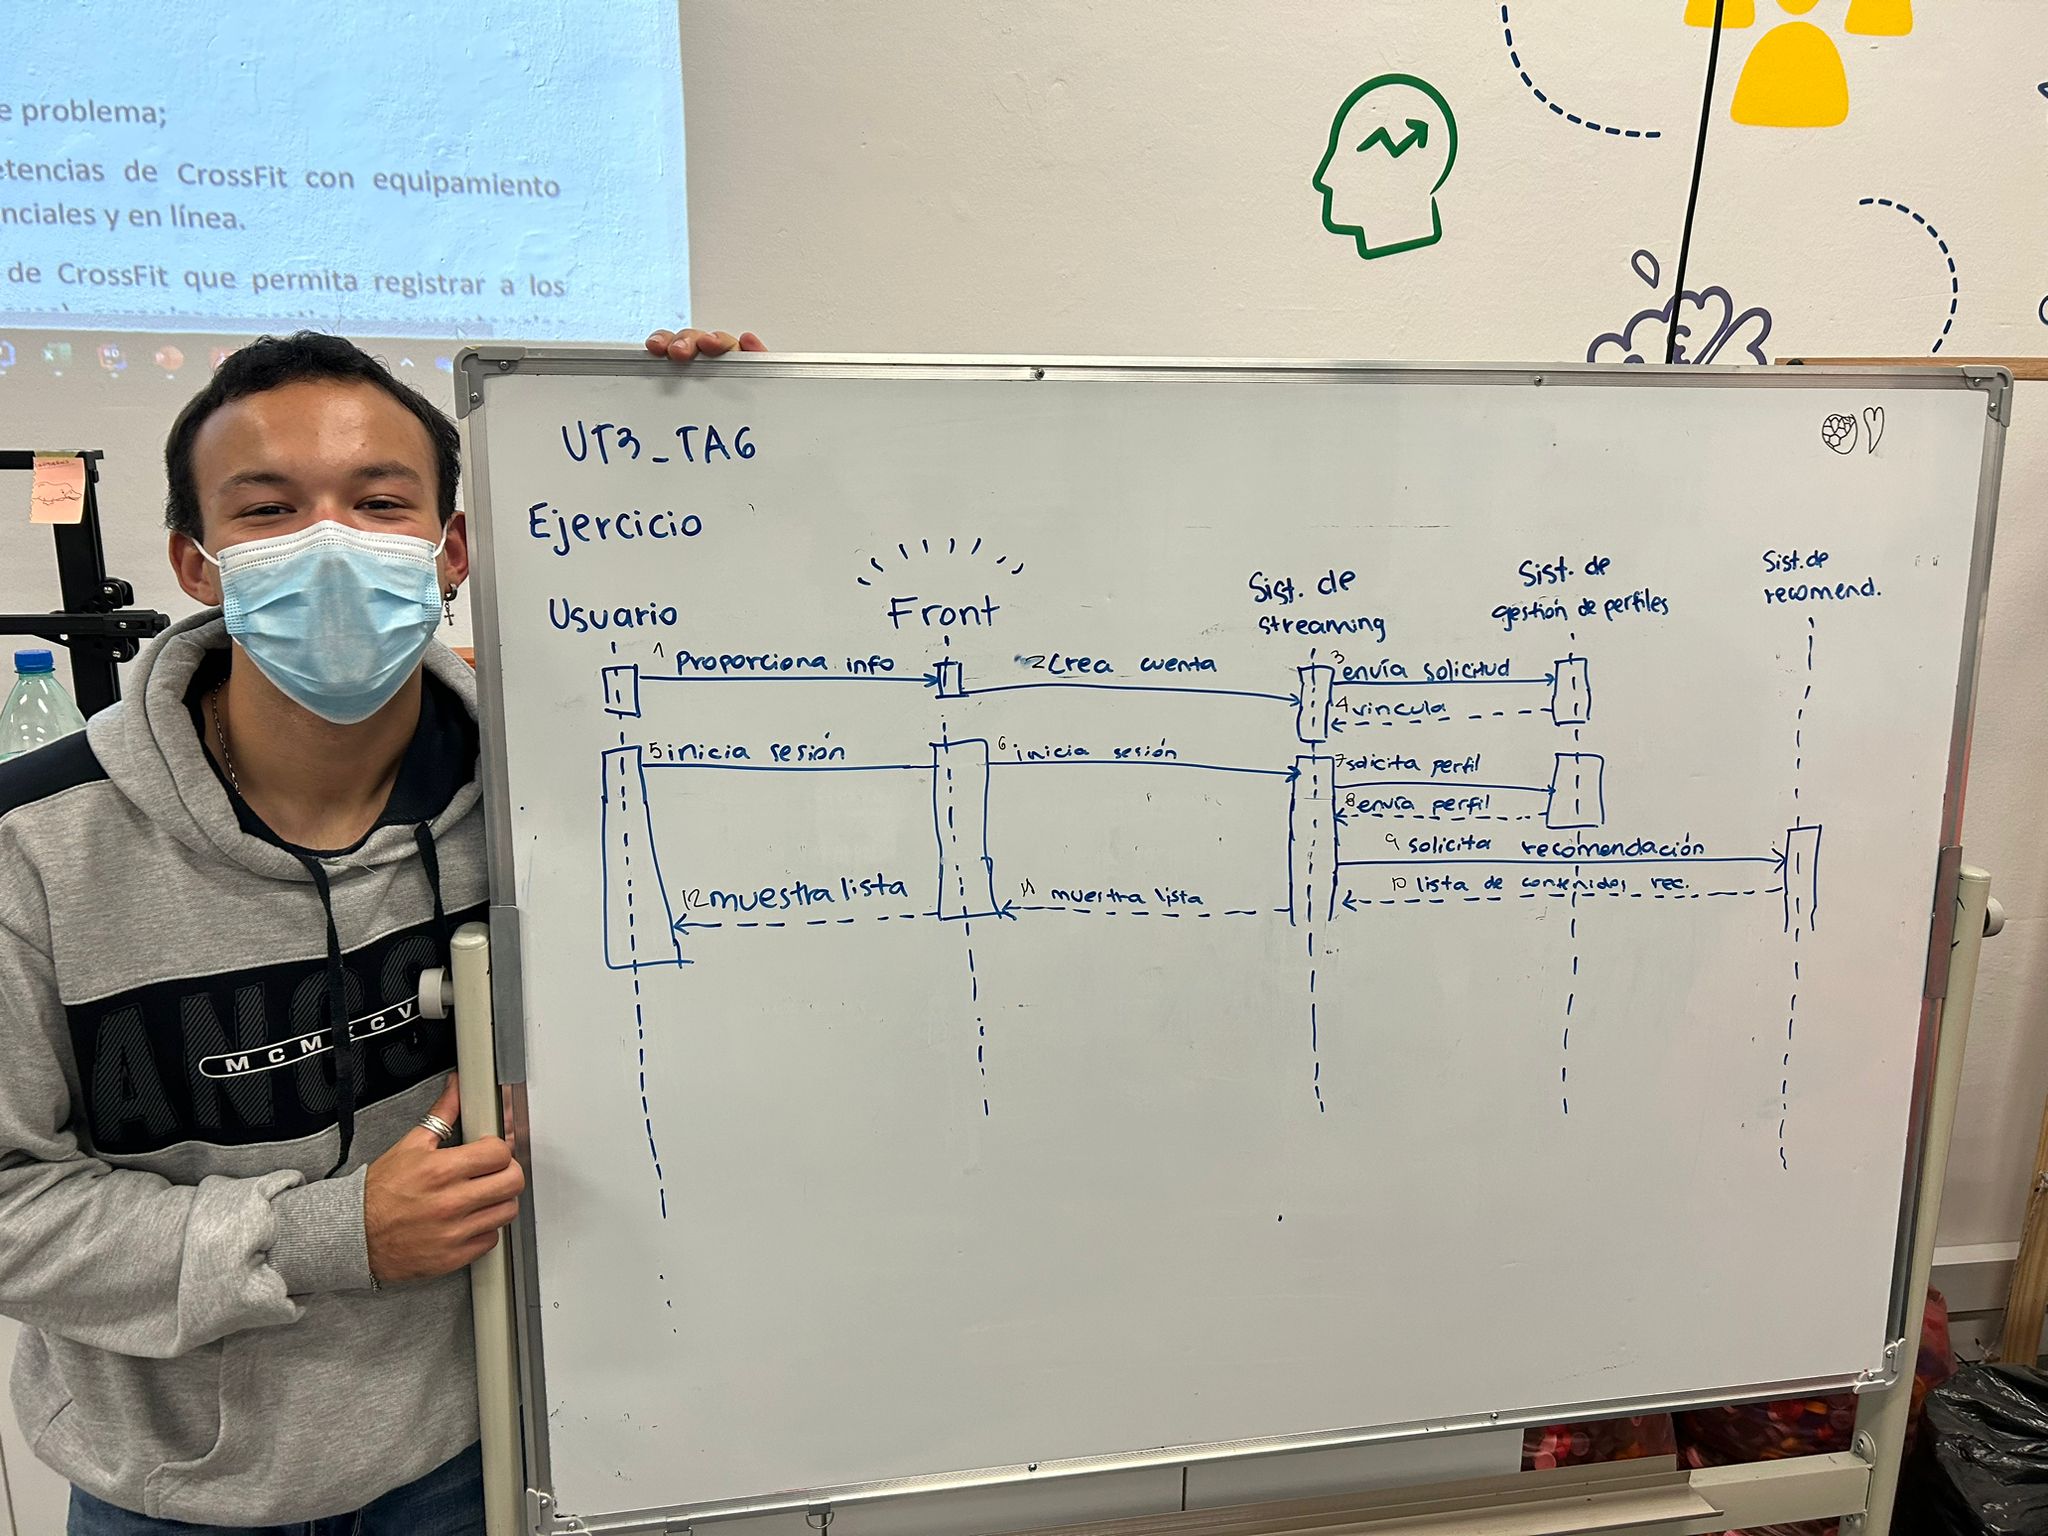 e problema;
etencias de CrossFit con equipamiento
nciales y en línea.
de CrossFit que permita registrar a los
UT3_TA6
Ejercicio
Usuario
Front
Sist. de
streaming
Sist. de
gestión de perfiles
Sist. de
recomend.
1 Proporciona info
2 Crea cuenta
3 envía solicitud
4 vincula
5 inicia sesión
6 inicia sesión
7 solicita perfil
8 envía perfil
9 solicita recomendación
10 lista de contenidos rec.
11 muestra lista
12 muestra lista
ANGS
MCMXCV